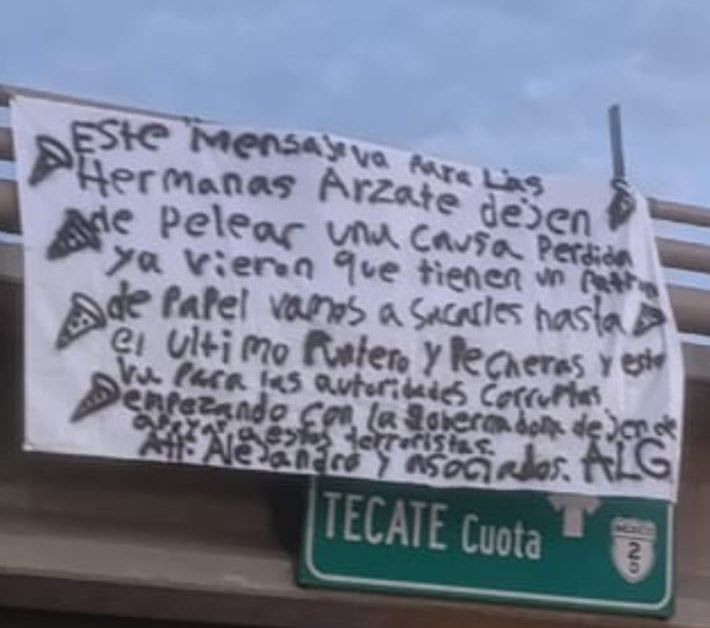 Este mensaje va Para Las
Hermanas Arzate dejen
de Pelear una causa Perdida
ya vieron que tienen un Patron
de Papel vamos a sacarles hasta
el ultimo Puntero y Pecheras y esto
va para las autoridades corruptas
empezando con la gobernadora dejen de
apoyar a estos terroristas.
Att. Alejandro y asociados. ALG
TECATE Cuota
MEXICO
2
D